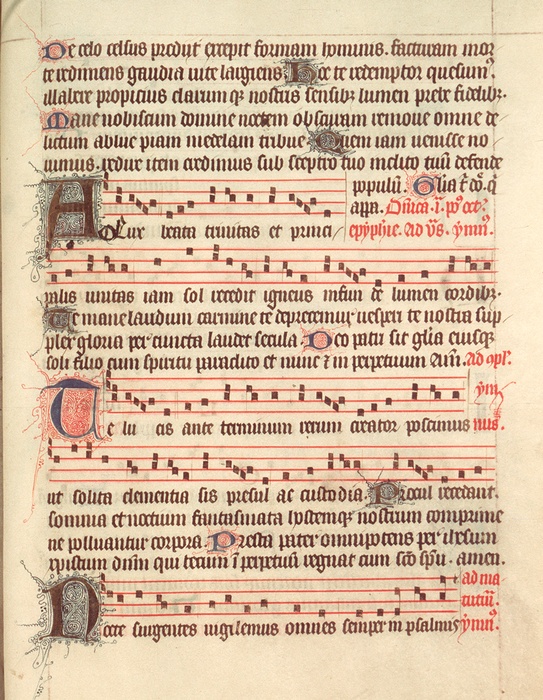 De celo celsus prodiit excepit formam hominis. facturam mor
te redimens gaudia vite largiens Hoc te redemptor quesumꝰ.
illabere propicius clarum qꝫ nostris sensibꝫ lumen prebe fidelibꝫ.
Mane nobiscum domine noctem obscuram remove omne de
lictum ablue piam medelam tribue Quem iam venisse no
vimus. redire item credimus sub sceptro tuo inclito tuū defende
populū. Glia t̄ dō. q̄
appa. Dn̄ica. ī. pꝰ oct.
O lux beata trinitas et princi
epyphie. Ad vs̄. ymnꝰ.
palis unitas iam sol recedit igneus infun de lumen cordibꝫ.
Te mane laudum carmine te deprecemur vesperi te nostra sup
plex gloria per cuncta laudet secula Deo patri sit glīa eiusqꝫ
soli filio cum spiritu paraclito et nunc ⁊ in perpetuum Am̄. Ad cpl̄.
ym
Te lu cis ante terminum rerum creator poscimus nus.
ut solita clementia sis presul ac custodia. Procul recedant.
somnia et noctium fantasmata hostemqꝫ nostrum comprime
ne polluantur corpora. Presta pater omnipotens per ihesum
xpistum dn̄m qui tecum ī perpetuus regnat cum scō spū. amen.
ad ma
tutīū.
Nocte surgentes vigilemus omnes semper in psalmis ymnꝰ.